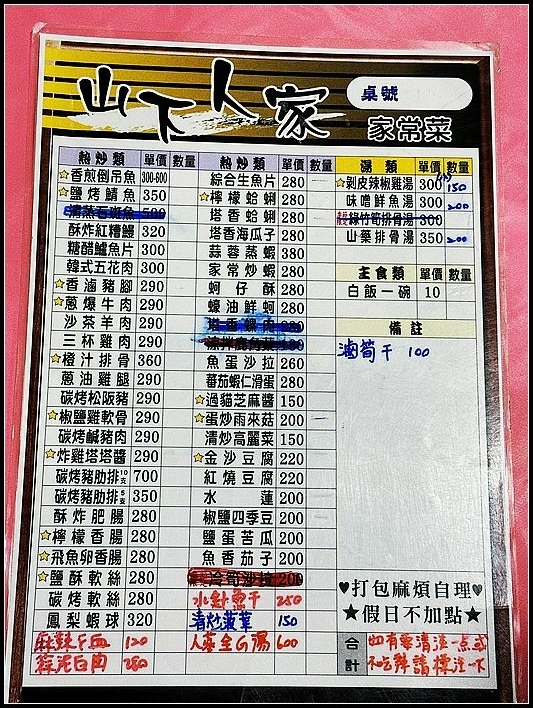 山下人家
桌號
家常菜
熱炒類 單價 數量
☆香煎倒吊魚 300-600
☆鹽烤鯖魚 350
清蒸石斑魚 500
酥炸紅糟鰻 320
糖醋鱸魚片 300
韓式五花肉 300
☆香滷豬腳 290
☆蔥爆牛肉 290
沙茶羊肉 290
三杯雞肉 290
☆橙汁排骨 360
蔥油雞腿 290
碳烤松阪豬 290
☆椒鹽雞軟骨 290
碳烤鹹豬肉 290
☆炸雞塔塔醬 290
碳烤豬肋排10支 700
碳烤豬肋排5支 350
酥炸肥腸 280
☆檸檬香腸 280
☆飛魚卵香腸 280
☆鹽酥軟絲 280
碳烤軟絲 280
鳳梨蝦球 320
麻辣鴨血 120
蒜泥白肉 280
熱炒類 單價 數量
綜合生魚片 280
☆檸檬蛤蜊 280
塔香蛤蜊 280
塔香海瓜子 280
蒜蓉蒸蝦 380
家常炒蝦 280
蚵仔酥 280
蠔油鮮蚵 280
塔香螺肉 280
涼拌鹿角菜 100
魚蛋沙拉 260
蕃茄蝦仁滑蛋 280
☆過貓芝麻醬 150
☆蛋炒雨來菇 200
清炒高麗菜 150
☆金沙豆腐 220
紅燒豆腐 220
水蓮 200
椒鹽四季豆 200
鹽蛋苦瓜 200
魚香茄子 200
冷筍沙拉 200
水針魚干 250
清炒菠菜 150
人蔘全G湯 600
湯類 單價 數量
☆剝皮辣椒雞湯 300 150
味噌鮮魚湯 300 200
綠竹筍排骨湯 300
山藥排骨湯 350 200
主食類 單價 數量
白飯一碗 10
備註
滷筍干 100
♥打包麻煩自理♥
★假日不加點★
合計
如有要清淡一点或
不吃辣請標注一下